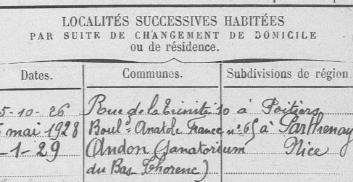 LOCALITÉS SUCCESSIVES HABITÉES
PAR SUITE DE CHANGEMENT DE DOMICILE
ou de résidence.
Dates. Communes. Subdivisions de région
5-10-26 Rue de la Trinité 10 à Poitiers
mai 1928 Boul. Anatole France n° 65 à Parthenay
-1-29 Andon (Sanatorium Nice
du Bas Thorenc)